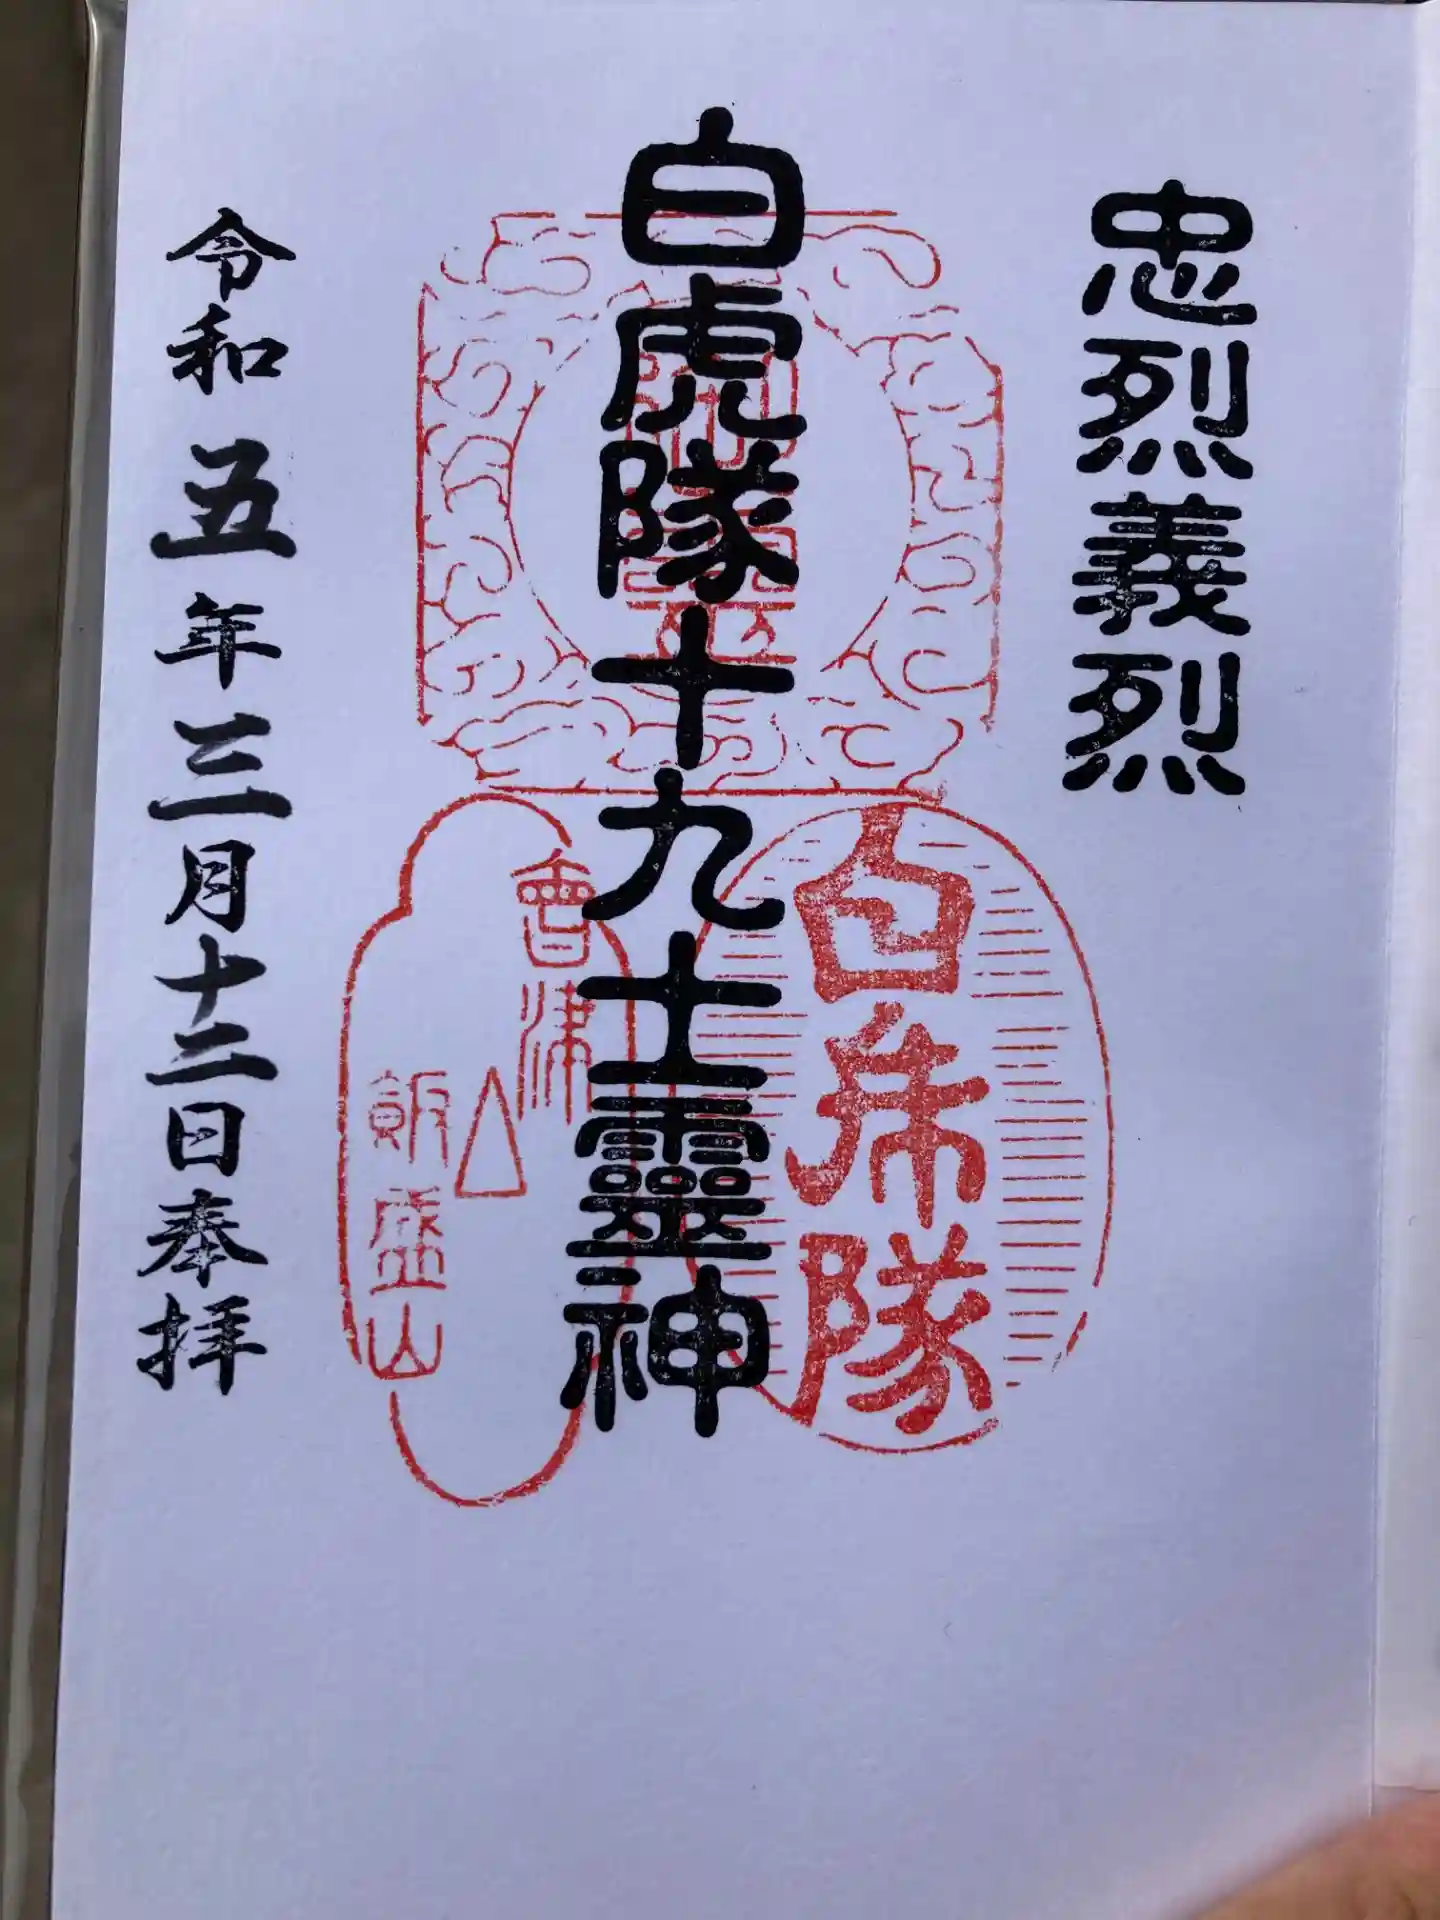 忠烈義烈
白虎隊十九士靈神
白虎隊
會津
飯盛山
令和五年三月十二日奉拝